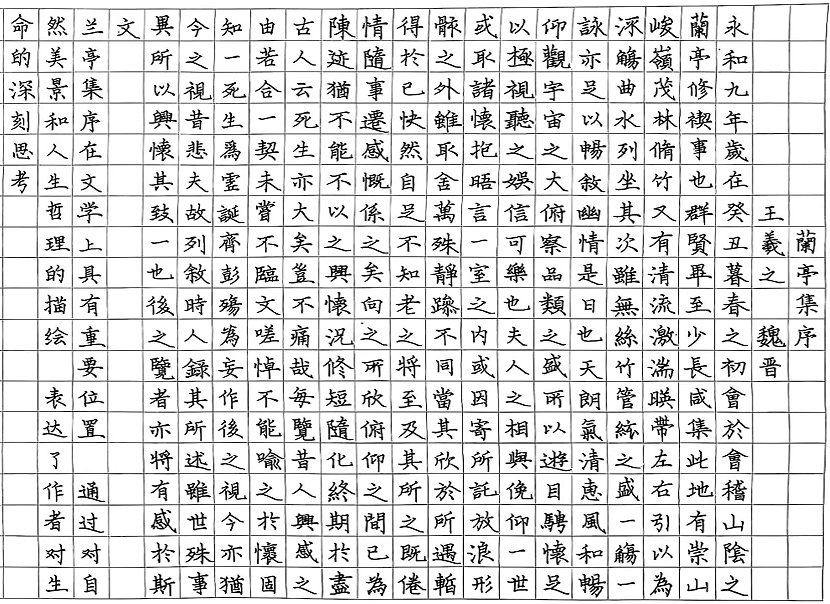 蘭亭集序
王羲之 魏晉
永和九年歲在癸丑暮春之初會於會稽山陰之
蘭亭修禊事也群賢畢至少長咸集此地有崇山
峻嶺茂林脩竹又有清流激湍暎帶左右引以為
流觴曲水列坐其次雖無絲竹管絃之盛一觴一
詠亦足以暢敘幽情是日也天朗氣清惠風和暢
仰觀宇宙之大俯察品類之盛所以遊目騁懷足
以極視聽之娛信可樂也夫人之相與俛仰一世
或取諸懷抱晤言一室之內或因寄所託放浪形
骸之外雖取舍萬殊靜躁不同當其欣於所遇暫
得於己快然自足不知老之將至及其所之既倦
情隨事遷感慨係之矣向之所欣俯仰之間已為
陳迹猶不能不以之興懷況修短隨化終期於盡
古人云死生亦大矣豈不痛哉每覽昔人興感之
由若合一契未嘗不臨文嗟悼不能喻之於懷固
知一死生為虛誕齊彭殤為妄作後之視今亦猶
今之視昔悲夫故列敘時人錄其所述雖世殊事
異所以興懷其致一也後之覽者亦將有感於斯
文
兰亭集序在文学上具有重要位置 通过对自
然美景和人生哲理的描绘 表达了作者对生
命的深刻思考